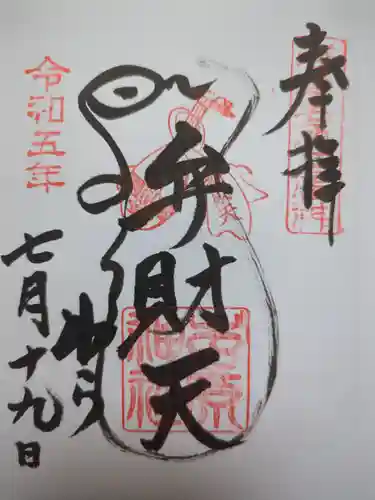 奉拝
弁財天
令和五年
七月十九日